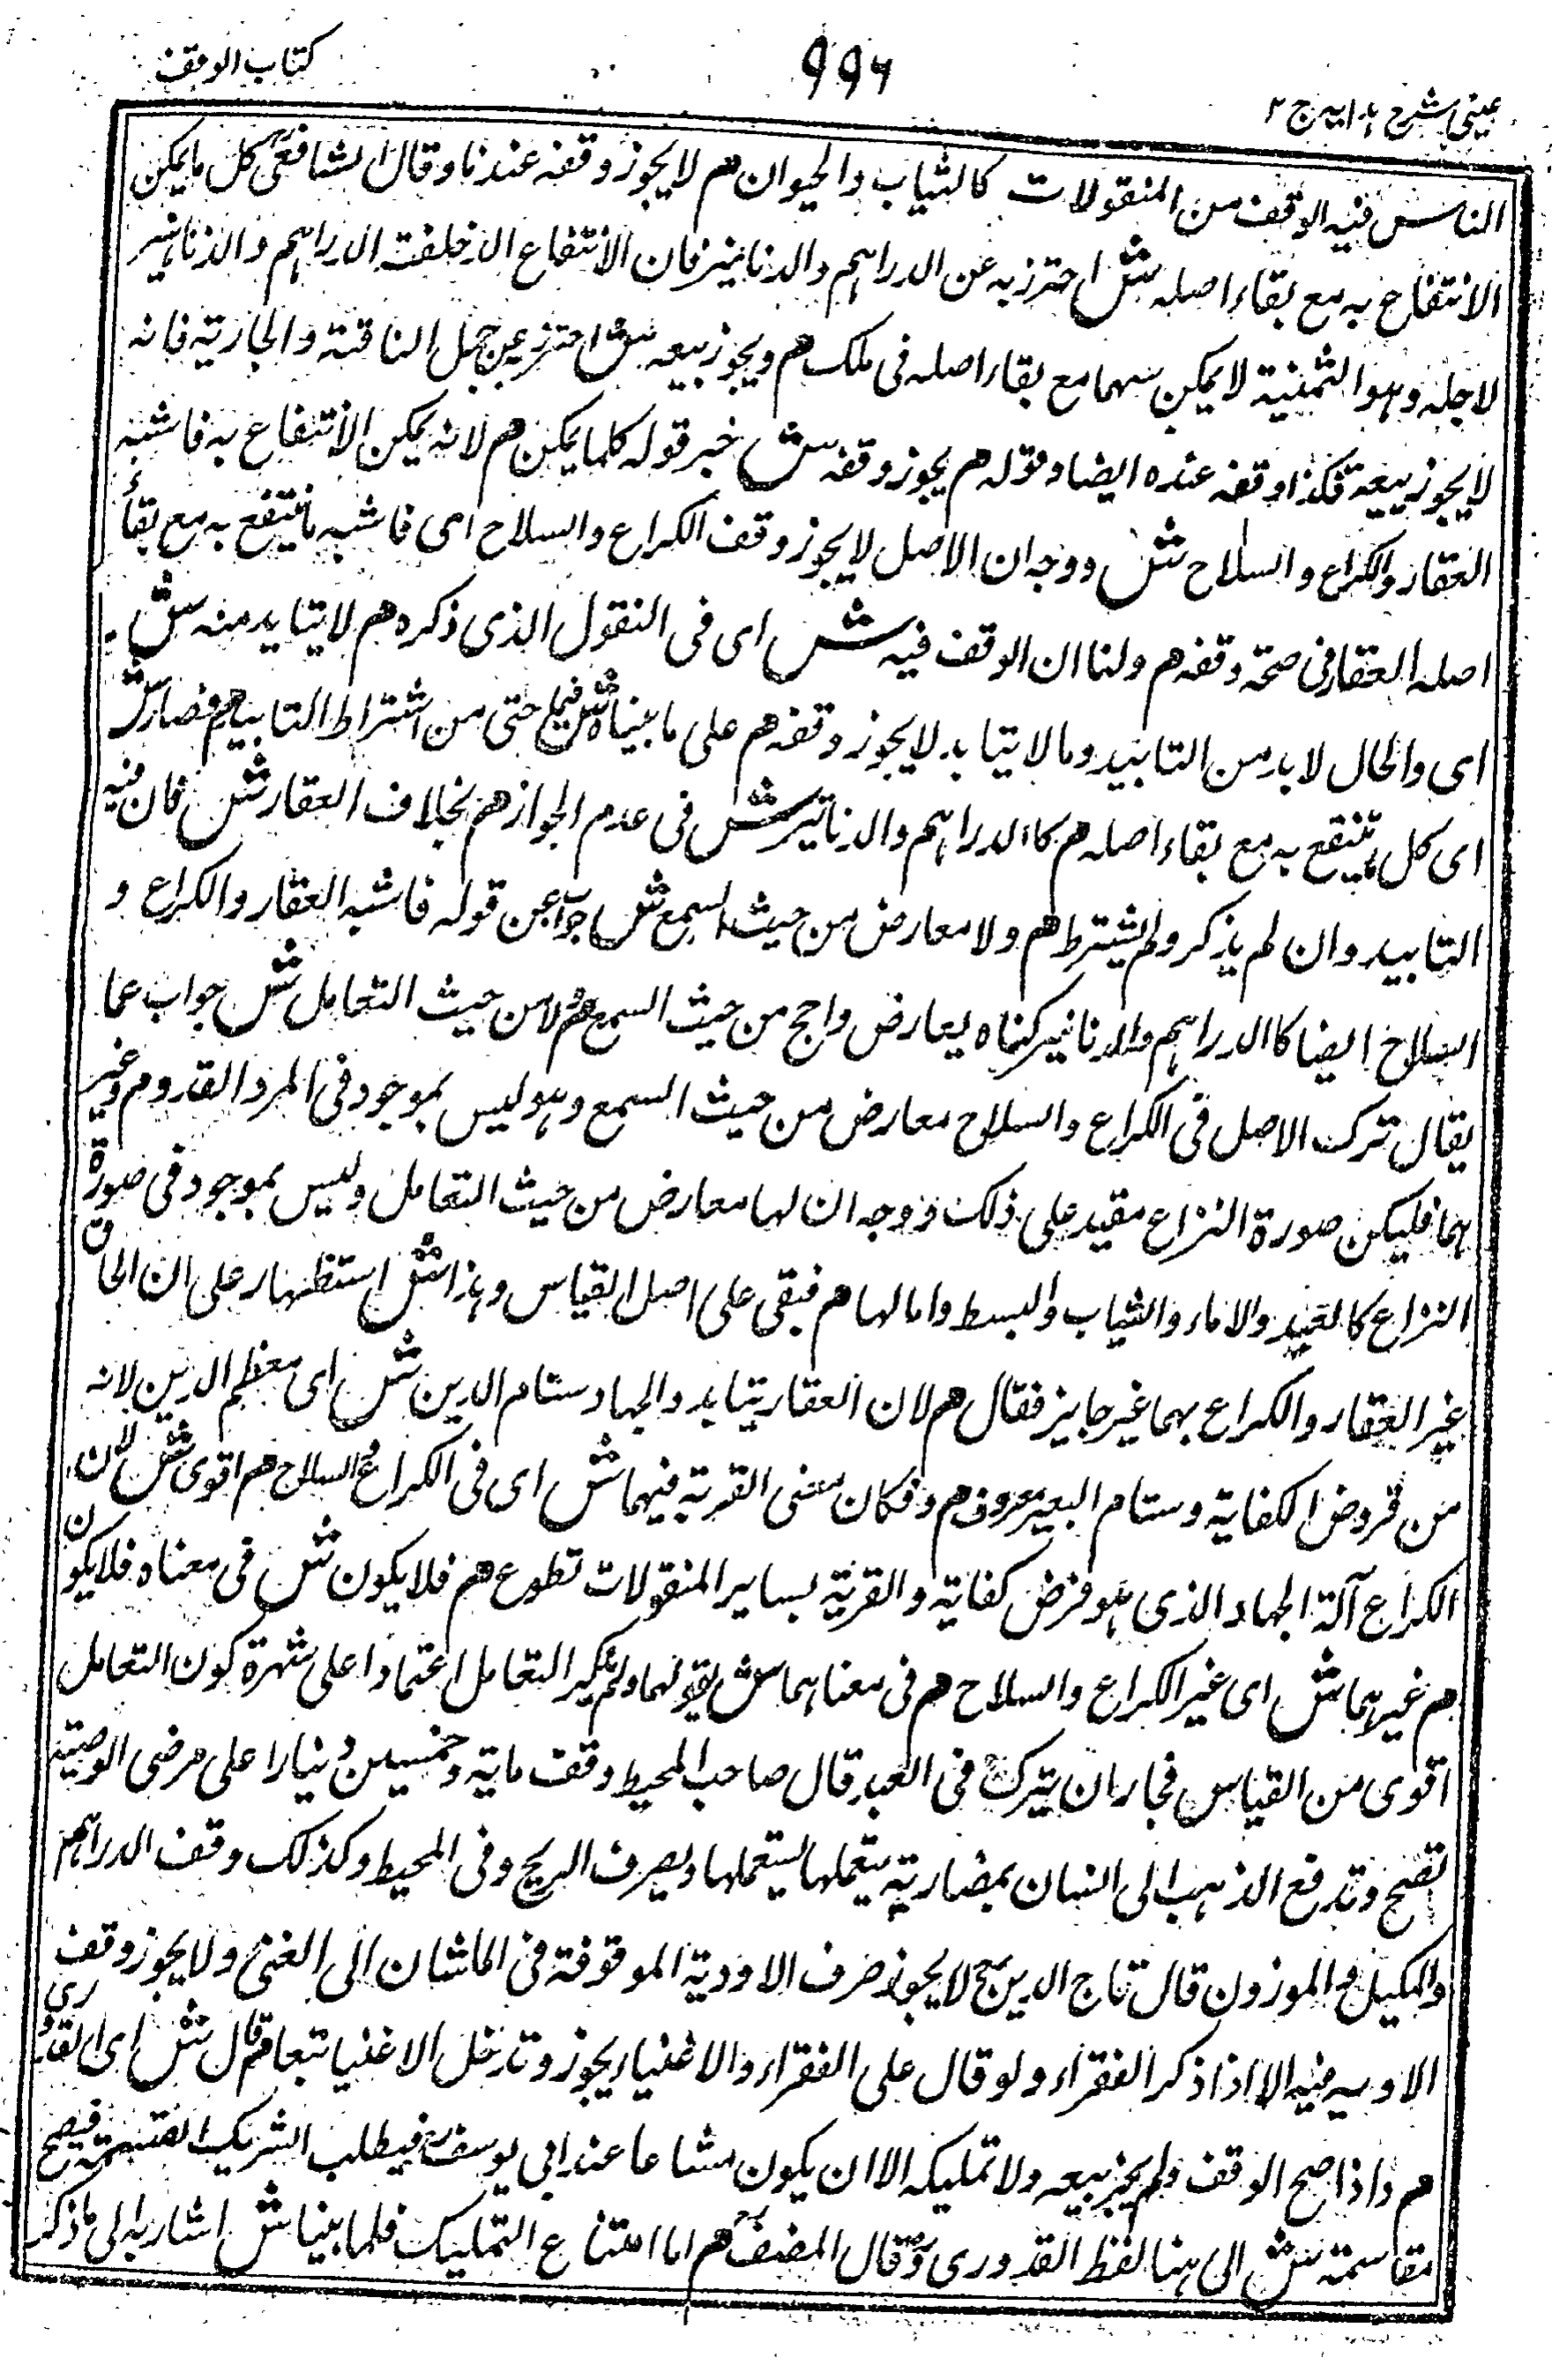 عینی شرح ہدایہ ج ۲
۹۹۶
كتاب الوقف
الناس فيه الوقف من المنقولات كالثياب والحيوان هم لا يجوز وقفه عندنا وقال الشافعی كل ما يمكن
الانتفاع به مع بقاء اصله ش احترز به عن الدراهم والدنانير فان الانتفاع الذ خلفته الدراهم والدنانير
لاجله وهو الثمنية لا يمكن بهما مع بقاء اصله فى ملك هم ويجوز بيعه ش احترز به عن حمل الناقة والجارية فانه
لا يجوز بيعه فكذا وقفه عنده ايضا وقوله هم يجوز وقفه ش خبر قوله كلما يمكن هم لانه يمكن الانتفاع به فاشبه
العقار والكراع والسلاح ش ووجه ان الاصل لا يجوز وقف الكراع والسلاح اى فاشبه ما ينتفع به مع بقاء
اصله العقار فى صحة وقفه هم ولنا ان الوقف فيه ش اى فى النقول الذى ذكره هم لا يتابد منه ش
اى والحال لا بد من التابيد وما لا يتابد لا يجوز وقفه هم على ما بيناه ش فيما حتى من اشتراط التابيد هم فصار ش
اى كل ما ينتفع به مع بقاء اصله هم كالدراهم والدنانير ش فى عدم الجواز هم بخلاف العقار ش فان فيه
التابيد وان لم يذكر ولم يشترط هم ولا معارض من حيث السمع ش جواب عن قوله فاشبه العقار والكراع و
السلاح ايضا كالدراهم والدنانير تركناه يعارض واجح من حيث السمع هم ولا من حيث التعامل ش جواب عما
يقال ترك الاصل فى الكراع والسلاح معارض من حيث السمع وهو ليس بموجود فى المر والقدوم وغير
هما فليكن صورة النزاع مقيد على ذلك ووجه ان لها معارض من حيث التعامل وليس بموجود فى صورة
النزاع كالعبيد والاماء والثياب والبسط وامثالها هم فبقى على اصل القياس وهذا ش استظهار على ان الحاق
غير العقار والكراع بهما غير جايز فقال هم لان العقار يتابد والجهاد سنام الدين ش اى معظم الدين لانه
من فروض الكفاية وسنام البعير معروف هم وفكان معنى القربة فيهما ش اى فى الكراع والسلاح هم اقوى ش لان
الكراع آلة الجهاد الذى هو فرض كفاية والقربة بساير المنقولات تطوع هم فلا يكون ش فى معناه فلا يكون
هم غيرهما ش اى غير الكراع والسلاح هم فى معناهما ش بقولهما ولم يذكر التعامل اعتمادا على شهرة كون التعامل
اقوى من القياس فجاز ان يترك فى العبد قال صاحب المحيط وقف ماية وخمسين دينارا على مرضى الوصية
تصح وتدفع الذهب الى انسان بمضاربة يتعملها ليستعملها ويصرف الربح وفى المحيط وكذلك وقف الدراهم
والمكيل والموزون قال تاج الدين رح لا يجوز صرف الاودية الموقوفة فى الماشان الى الغنى ولا يجوز وقف
الاوسيه فيه الا اذا ذكر الفقراء ولو قال على الفقراء والاغنياء يجوز وتدخل الاغنيا تبعا قم قال ش اى القدورى
هم واذا صح الوقف ولم يجز بيعه ولا تمليكه الا ان يكون مشاعا عند ابى يوسف فيطلب الشريك القسمة فيصح
مقاسمته ش الى هنا لفظ القدورى وقال المصنف هم اما امتناع التمليك فلما بينا ش اشار به الى ما ذكر